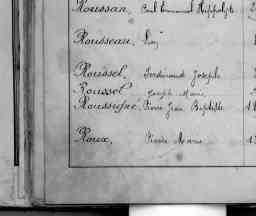 Roussan, Paul Emmanuel Hippolyte 2
Rousseau, Luij
Roussel, Ferdinand Joseph
Roussel Joseph Marie
Roussigné, Pierre Jean Baptiste 1
Roux, Pierre Marie 1